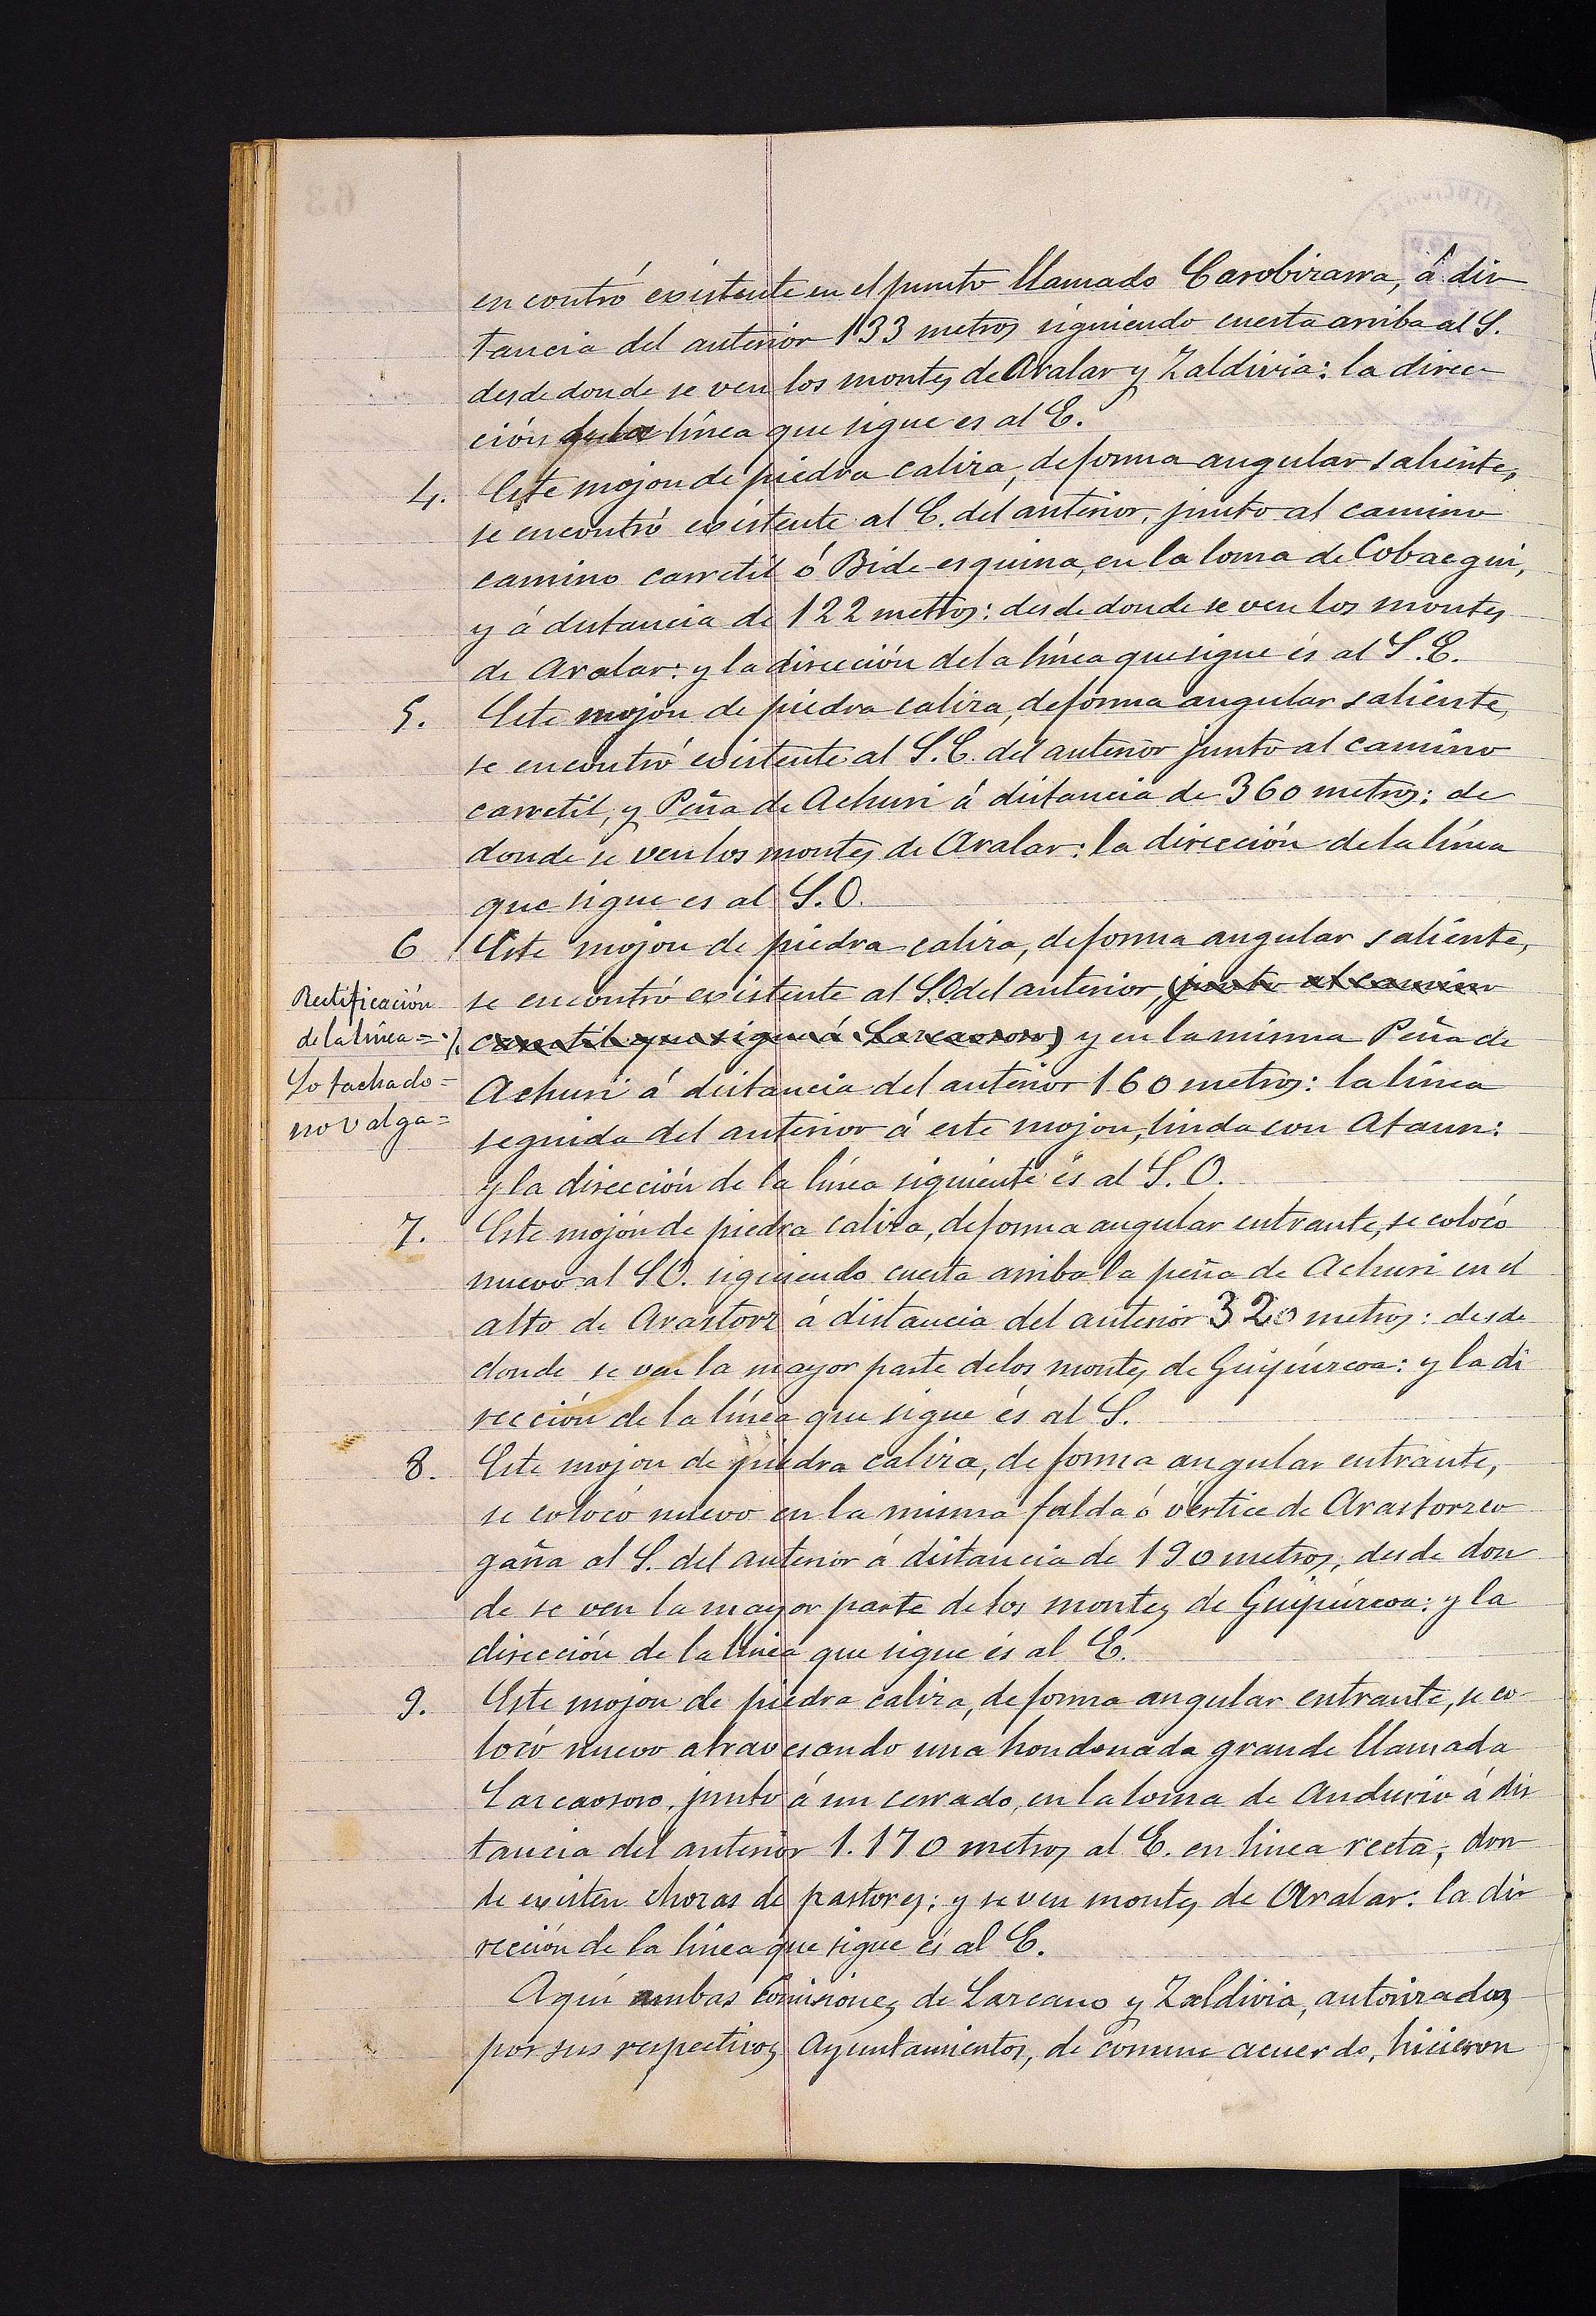 encontró existente en el punto llamado Carobizarra, á dis
tancia del anterior 133 metros siguiendo cuesta arriba al S.
desde donde se ven los montes de Aralar y Zaldivia: la direc-
ción de la línea que sigue es al E.
4. Este mojon de piedra caliza, de forma angular saliente,
se encontró existente al E. del anterior, junto al camino
camino carretil ó Bide-esquina, en la loma de Cobaegui,
y á distancia de 122 metros: desde donde se ven los montes
de Aralar: y la dirección de la línea que sigue és al S.E.
5. Este mojon de piedra caliza, de forma angular saliente,
se encontró existente al S.E. del anterior junto al camino
carretil, y Peña de Achuri á distancia de 360 metros: de
donde se ven los montes de Aralar: la dirección de la línea
que sigue es al S.O.
6 Este mojon de piedra caliza, de forma angular saliente,
Rectificación
de la línea =
Lo tachado =
no valga =
se encontró existente al S.O. del anterior, (junto al camino
carretil que sigue á Larcaosoro) y en la misma Peña de
Achuri á distancia del anterior 160 metros: la línea
seguida del anterior á este mojon, linda con Ataun:
y la dirección de la línea siguiente és al S.O.
7. Este mojón de piedra caliza, de forma angular entrante, se colocó
nuevo al SO. siguiendo cuesta arriba la peña de Achuri en el
alto de Arastorz á distancia del anterior 320 metros: desde
donde se ven la mayor parte de los montes de Guipúzcoa: y la di
rección de la línea que sigue és al S.
8. Este mojon de piedra caliza, de forma angular entrante,
se colocó nuevo en la misma falda ó vértice de Arastorzco
gaña al S. del anterior á distancia de 190 metros, desde don
de se ven la mayor parte de los montes de Guipúzcoa: y la
dirección de la línea que sigue és al E.
9. Este mojon de piedra caliza, de forma angular entrante, se co-
locó nuevo atravesando una hondonada grande llamada
Larcaosoro, junto á un cerrado, en la loma de Andurio á dis
tancia del anterior 1.170 metros al E. en línea recta; don
de existen chozas de pastores; y se ven montes de Aralar: la di
rección de la línea que sigue és al E.
Aquí ambas Comisiones de Lazcano y Zaldivia, autorizadas
por sus respectivos Ayuntamientos, de comun acuerdo, hicieron